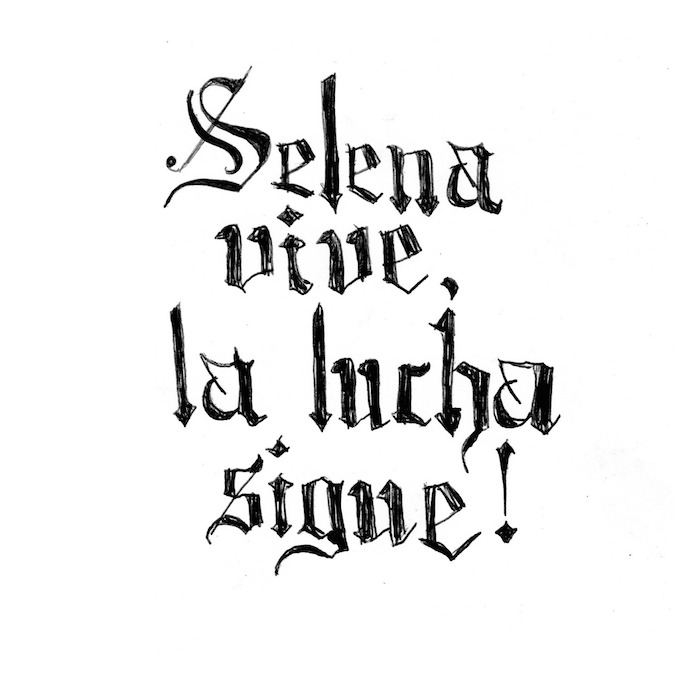 Selena
vive,
la lucha
sigue!